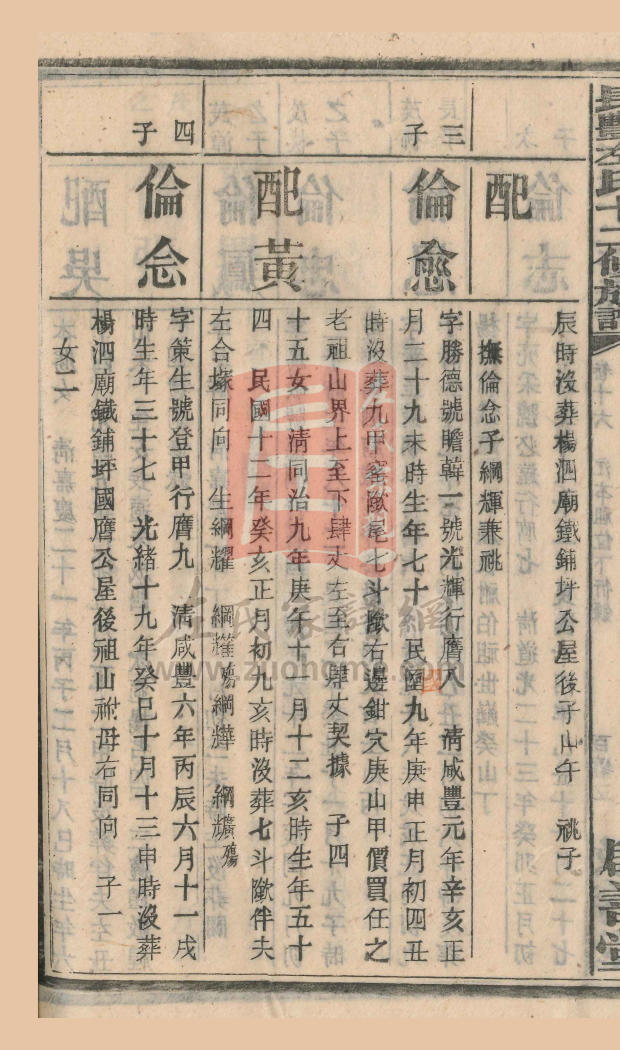 長豐左氏十二修族譜 卷十六
辰時沒葬楊泗廟鐵鋪坪公屋後子山午 祧子
配
撫倫念子綱輝兼祧
三子
倫愈
字勝德號瞻韓一號光輝行鷹八 清咸豐元年辛亥正
月二十九未時生年七十 民國九年庚申正月初四丑
時沒葬九甲窰墩尾七斗墩右邊鉗穴庚山甲價買任之
老祖山界上至下肆丈左至右肆丈契據 子四
配黃
十五女 清同治九年庚午十一月十二亥時生年五十
四 民國十二年癸亥正月初九亥時沒葬七斗墩伴夫
左合塜同向 生綱耀 綱 殤綱燁 綱 殤
四子
倫念
字策生號登甲行鷹九 清咸豐六年丙辰六月十一戌
時生年三十七 光緒十九年癸巳十月十三申時沒葬
楊泗廟鐵鋪坪國鷹公屋後祖山祔母右同向 子一
女一
左氏家譜網
www.zuohome.com